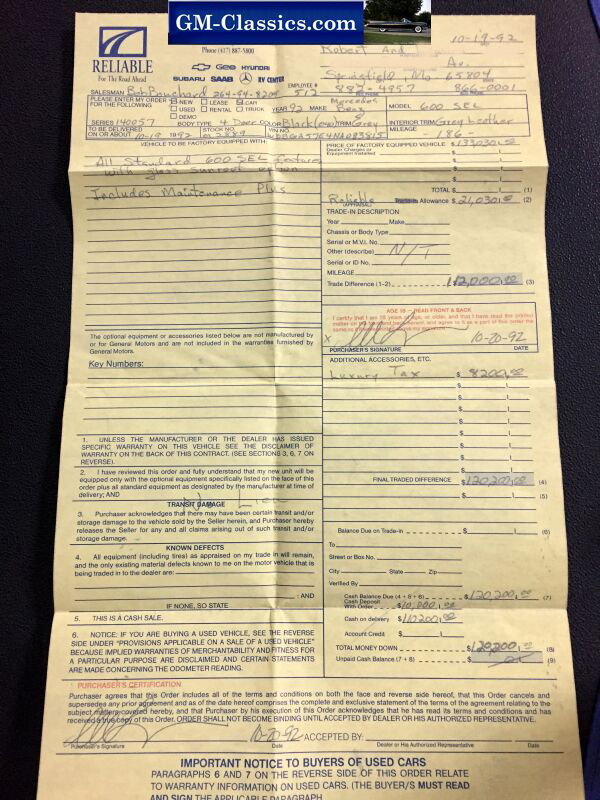 GM-Classics.com
RELIABLE
For The Road Ahead
Phone (417) 887-5800
CHEVROLET Geo HYUNDAI
SUBARU SAAB RV CENTER
Robert Ard
10-19-92
Av.
Springfield, Mo 65804
SALESMAN Bob Bouchard 264-94-8204 EMPLOYEE # 512
887-4957 866-0001
PLEASE ENTER MY ORDER FOR THE FOLLOWING
NEW LEASE CAR
USED RENTAL TRUCK
DEMO
YEAR 92 MAKE Mercedes Benz MODEL 600 SEL
SERIES 140057 BODY TYPE 4 Door COLOR Black TRIM Grey INTERIOR TRIM Grey Leather
TO BE DELIVERED ON OR ABOUT 10-19 1992
STOCK NO.
VIN NO.
MILEAGE - 186 -
VEHICLE TO BE FACTORY EQUIPPED WITH:
All Standard 600 SEL features
with glass sunroof option
Includes Maintenance Plus
PRICE OF FACTORY EQUIPPED VEHICLE $133030.00
Dealer Charges or Equipment Installed
TOTAL $ (1)
Reliable Allowance $ 21,030.00 (2)
(APPRAISAL)
TRADE-IN DESCRIPTION
Year Make
Chassis or Body Type
Serial or M.V.I. No.
Other (describe) N/T
Serial or ID No.
MILEAGE
Trade Difference (1-2) 112,000.00 (3)
AGE 18 - READ FRONT & BACK
I certify that I am 18 years of age, or older, and that I have read the printed
matter on the front and back hereof and agree to it as a part of this order the
same as
X 10-20-92
PURCHASER'S SIGNATURE DATE
The optional equipment or accessories listed below are not manufactured by
or for General Motors and are not included in the warranties furnished by
General Motors.
Key Numbers:
ADDITIONAL ACCESSORIES, ETC.
Luxury Tax $ 8200.00
1. UNLESS THE MANUFACTURER OR THE DEALER HAS ISSUED
SPECIFIC WARRANTY ON THIS VEHICLE SEE THE DISCLAIMER OF
WARRANTY ON THE BACK OF THIS CONTRACT. (SEE SECTIONS 3, 6, 7 ON
REVERSE).
2. I have reviewed this order and fully understand that my new unit will be
equipped only with the optional equipment specifically listed on the face of this
order plus all standard equipment as designated by the manufacturer at time of
delivery; AND
TRANSIT DAMAGE
No Lien
3. Purchaser acknowledges that there may have been certain transit and/or
storage damage to the vehicle sold by the Seller herein, and Purchaser hereby
releases the Seller for any and all claims arising out of such transit and/or
storage damage.
KNOWN DEFECTS
4. All equipment (including tires) as appraised on my trade in will remain,
and the only existing material defects known to me on the motor vehicle that is
being traded in to the dealer are:
; AND
IF NONE, SO STATE
5. THIS IS A CASH SALE.
6. NOTICE: IF YOU ARE BUYING A USED VEHICLE, SEE THE REVERSE
SIDE UNDER "PROVISIONS APPLICABLE ON A SALE OF A USED VEHICLE"
BECAUSE IMPLIED WARRANTIES OF MERCHANTABILITY AND FITNESS
FOR A PARTICULAR PURPOSE ARE DISCLAIMED AND CERTAIN STATEMENTS
ARE MADE CONCERNING THE ODOMETER READING.
FINAL TRADED DIFFERENCE $120,200.00 (4)
(5)
Balance Due on Trade-in $ (6)
To
Street or Box No.
City State Zip
Verified By
Cash Balance Due (4 + 5 + 6) $120,200.00 (7)
Cash Deposit With Order $10,000.00
Cash on delivery $110200.00
Account Credit $
TOTAL MONEY DOWN $120,200.00 (8)
Unpaid Cash Balance (7 + 8) $ (9)
PURCHASER'S CERTIFICATION
Purchaser agrees that this Order includes all of the terms and conditions on both the face and reverse side hereof, that this Order cancels and
supersedes any prior agreement and as of the date hereof comprises the complete and exclusive statement of the terms of the agreement relating to the
subject matters covered hereby, and that Purchaser by his execution of this Order acknowledges that he has read its terms and conditions and has
received a true copy of this Order. ORDER SHALL NOT BECOME BINDING UNTIL ACCEPTED BY DEALER OR HIS AUTHORIZED REPRESENTATIVE.
10-20-92 ACCEPTED BY:
Purchaser's Signature Date Dealer or His Authorized Representative Date
IMPORTANT NOTICE TO BUYERS OF USED CARS
PARAGRAPHS 6 AND 7 ON THE REVERSE SIDE OF THIS ORDER RELATE
TO WARRANTY INFORMATION ON USED CARS. (THE BUYER/S MUST READ
AND SIGN THE APPLICABLE PARAGRAPH